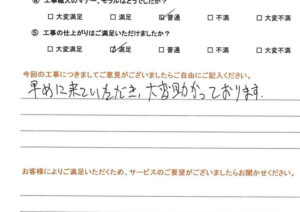 ④ 工事職人のマナー、モラルはどうでしたか?
□ 大変満足 □ 満足 ☑ 普通 □ 不満 □ 大変不満
⑤ 工事の仕上がりはご満足いただけましたか?
□ 大変満足 ☑ 満足 □ 普通 □ 不満 □ 大変不満
今回の工事につきましてご意見がございましたらご自由にご記入ください。
早めに来ていただき、大変助かっております。
お客様によりご満足いただくため、サービスのご要望がございましたらお聞かせください。